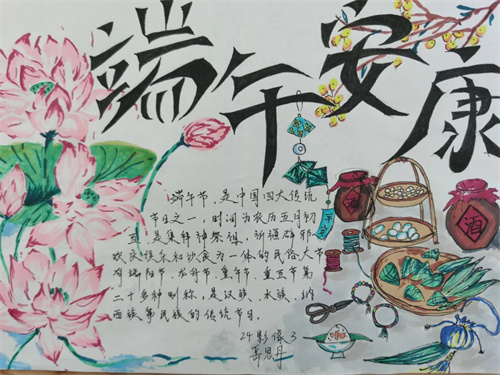 端午安康
端午节，是中国四大传统
节日之一，时间为农历五月初
五，是集拜神祭祖、祈福辟邪、
欢庆娱乐和饮食为一体的民俗大节
有端阳节、龙舟节、重午节、重五节等
二十多种别称，是汉族、水族、纳
西族等民族的传统节日。
24影像3
酒
酒